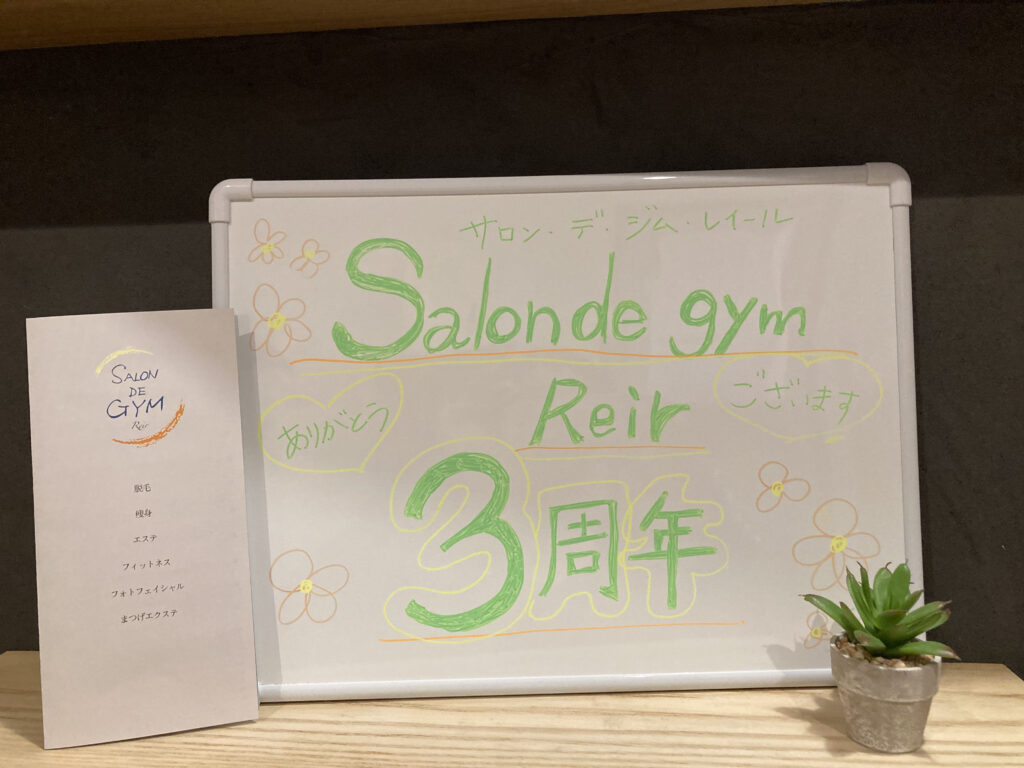 サロン・デ・ジム・レイール
Salon de gym
Reir
ありがとう
ございます
3周年
SALON
DE
GYM
Reir
脱毛
痩身
エステ
フィットネス
フォトフェイシャル
まつげエクステ